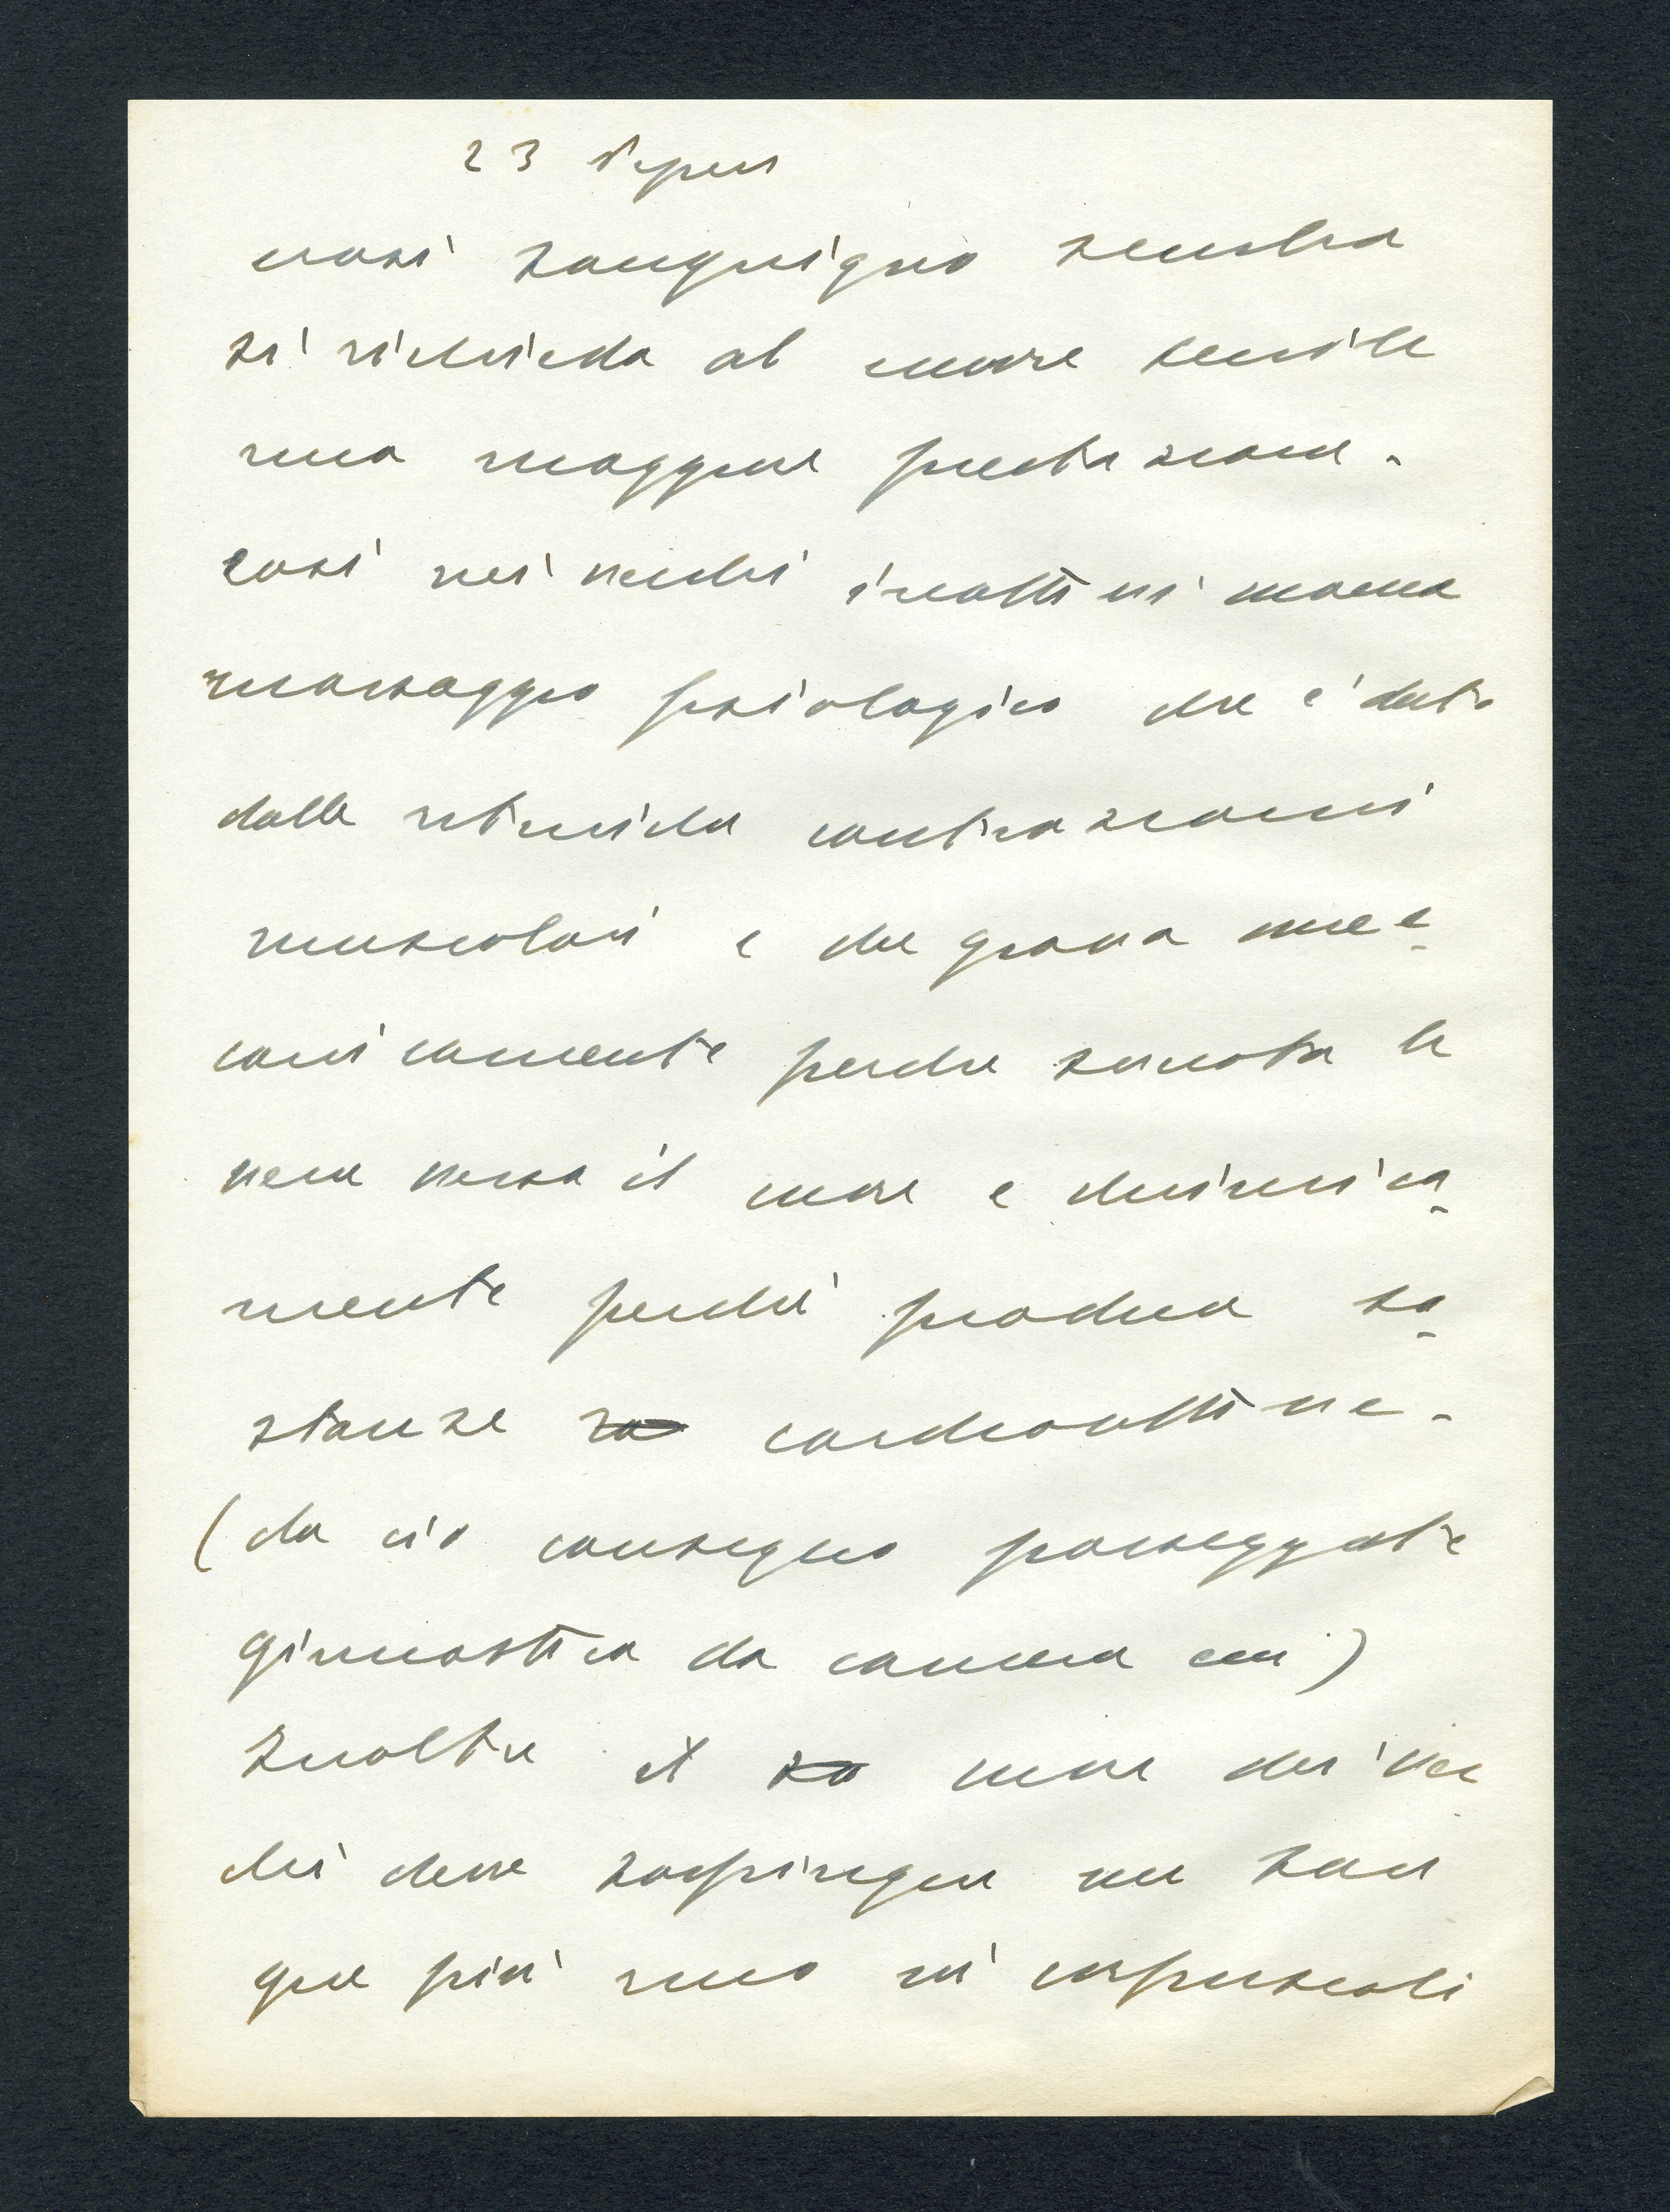 23
vasi sanguigno sembra
si richieda al cuore senile
una maggiore prestazione.
così nei vecchi inattivi manca
massaggio fisiologico che è dato
dalle ritmiche contrazioni
muscolari e che giova mec-
canicamente perché svuota le
vene verso il cuore e chimica-
mente perché produce so-
stanze cardioattive.
(da ciò consegue passeggiate
ginnastica da camera ecc)
Inoltre il cuore dei vec
chi deve sospingere un san
gue più ricco in corpuscoli